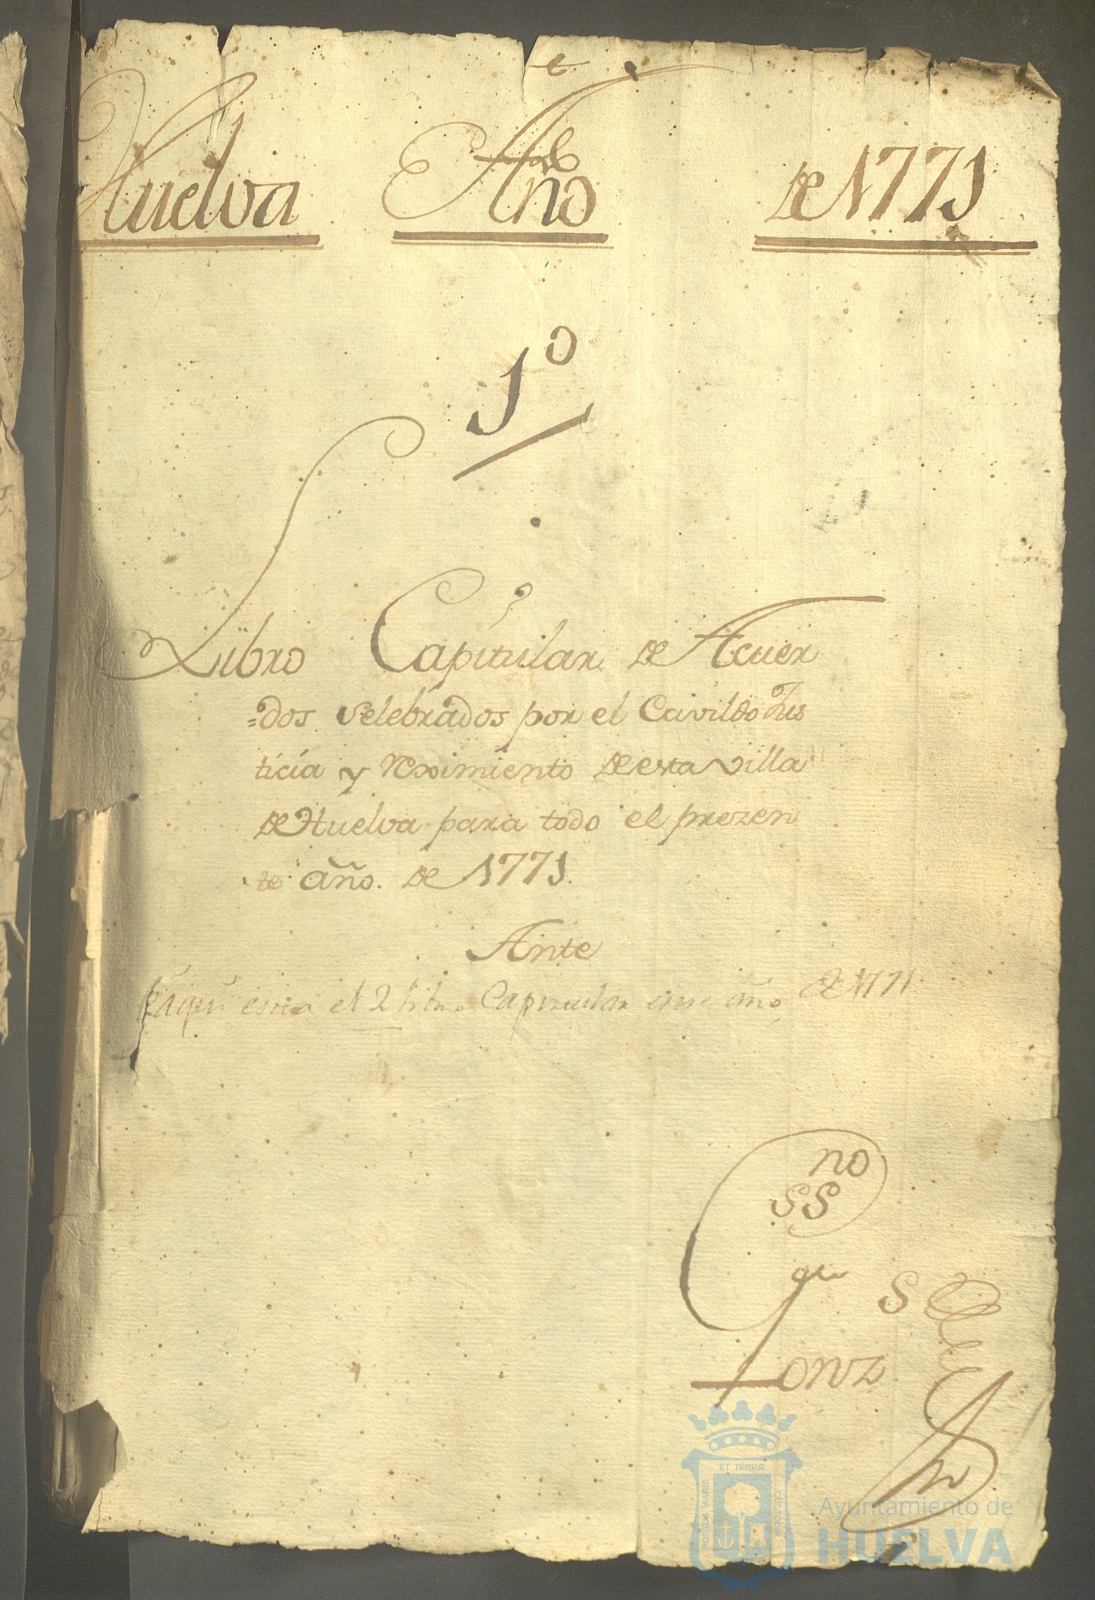 Huelva Año de 1771
1º
Libro Capitular de Acuer
=dos Selebrados por el Cavildo Jus
ticia y Reximiento de esta villa
de Huelva para todo el prezen
te año. de 1771.
Ante
aqui esta el 2 libro Capitular año de 1771
no
SS
S
Gonz
ET TERRÆ
Ayuntamiento de
HUELVA